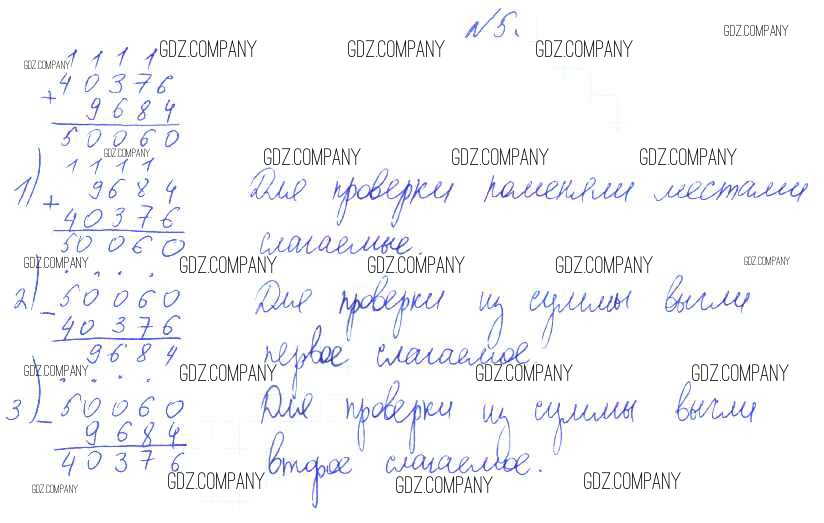 №5.
1 1 1 1
40376
+ 9684
50060
1) 1 1 1 1
+ 9684
40376
50060
Для проверки поменяли местами
слагаемые.
2) . . . .
- 50060
40376
9684
Для проверки из суммы вычли
первое слагаемое.
3) . . . .
- 50060
9684
40376
Для проверки из суммы вычли
второе слагаемое.
GDZ.COMPANY GDZ.COMPANY GDZ.COMPANY GDZ.COMPANY
GDZ.COMPANY
GDZ.COMPANY GDZ.COMPANY GDZ.COMPANY GDZ.COMPANY
GDZ.COMPANY GDZ.COMPANY GDZ.COMPANY GDZ.COMPANY GDZ.COMPANY
GDZ.COMPANY GDZ.COMPANY GDZ.COMPANY GDZ.COMPANY
GDZ.COMPANY GDZ.COMPANY GDZ.COMPANY GDZ.COMPANY